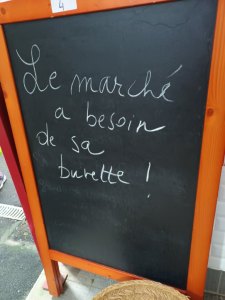 4
Le marché
a besoin
de sa
burette !